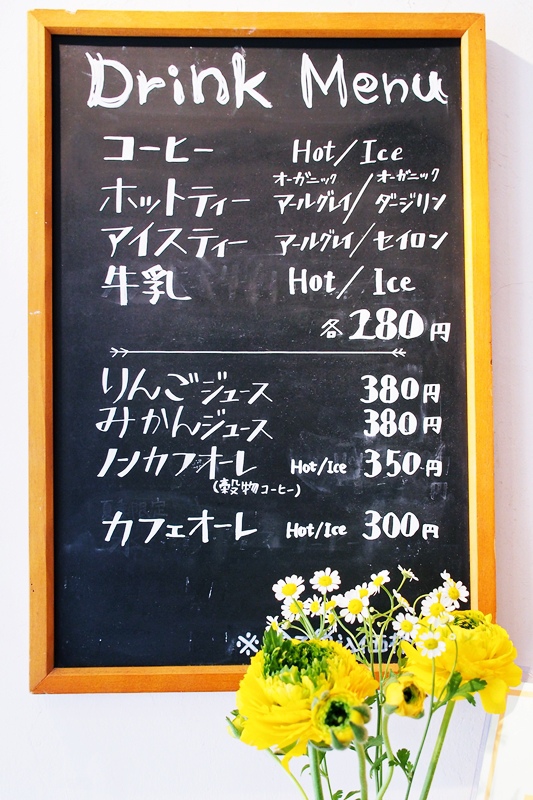 Drink Menu
コーヒー Hot/Ice
オーガニック オーガニック
ホットティー アールグレイ/ダージリン
アイスティー アールグレイ/セイロン
牛乳 Hot/Ice
各280円
りんごジュース 380円
みかんジュース 380円
ノンカフオーレ Hot/Ice 350円
(穀物コーヒー)
カフェオーレ Hot/Ice 300円
※